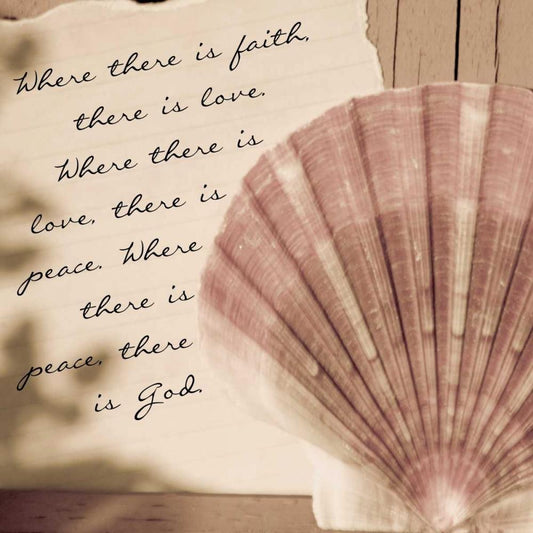 Where there is faith,
there is love.
Where there is
love, there is
peace. Where
there is
peace, there
is God.